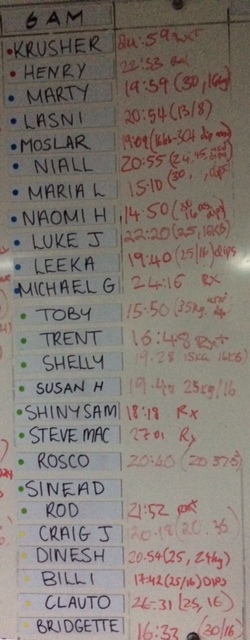 6 AM
KRUSHER 24:59
HENRY 22:33
MARTY 19:59 (30, 16kg)
LASNI 20:54 (13/8)
MOSLAR 19:09
NIALL 20:55
MARIA L 15:10 (30, dips)
NAOMI H 14:50
LUKE J 22:20 (25, 16KG)
LEEKA 19:40 (25/16) dips
MICHAEL G 24:16 Rx
TOBY 15:50 (35kg
TRENT 16:48 Rx+
SHELLY 19:28 15KG 16KG)
SUSAN H 19:40 25kg/16
SHINY SAM 18:18 Rx
STEVE MAC 27:01 Rx
ROSCO 20:40
SINEAD
ROD 21:52
CRAIG J 20:18
DINESH 20:54 (25, 24kg)
BILLI 17:42 (25/16) DIPS
CLAUTO 26:31 (25, 16)
BRIDGETTE 16:32 (30/16)